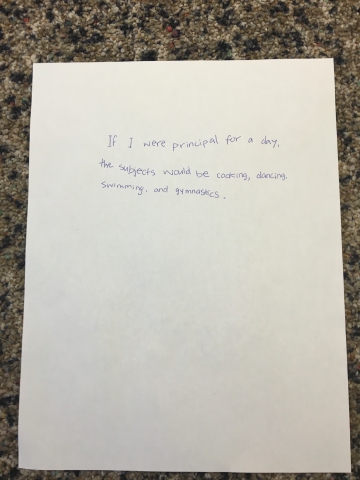 If I were principal for a day,
the subjects would be cooking, dancing,
swimming, and gymnastics.